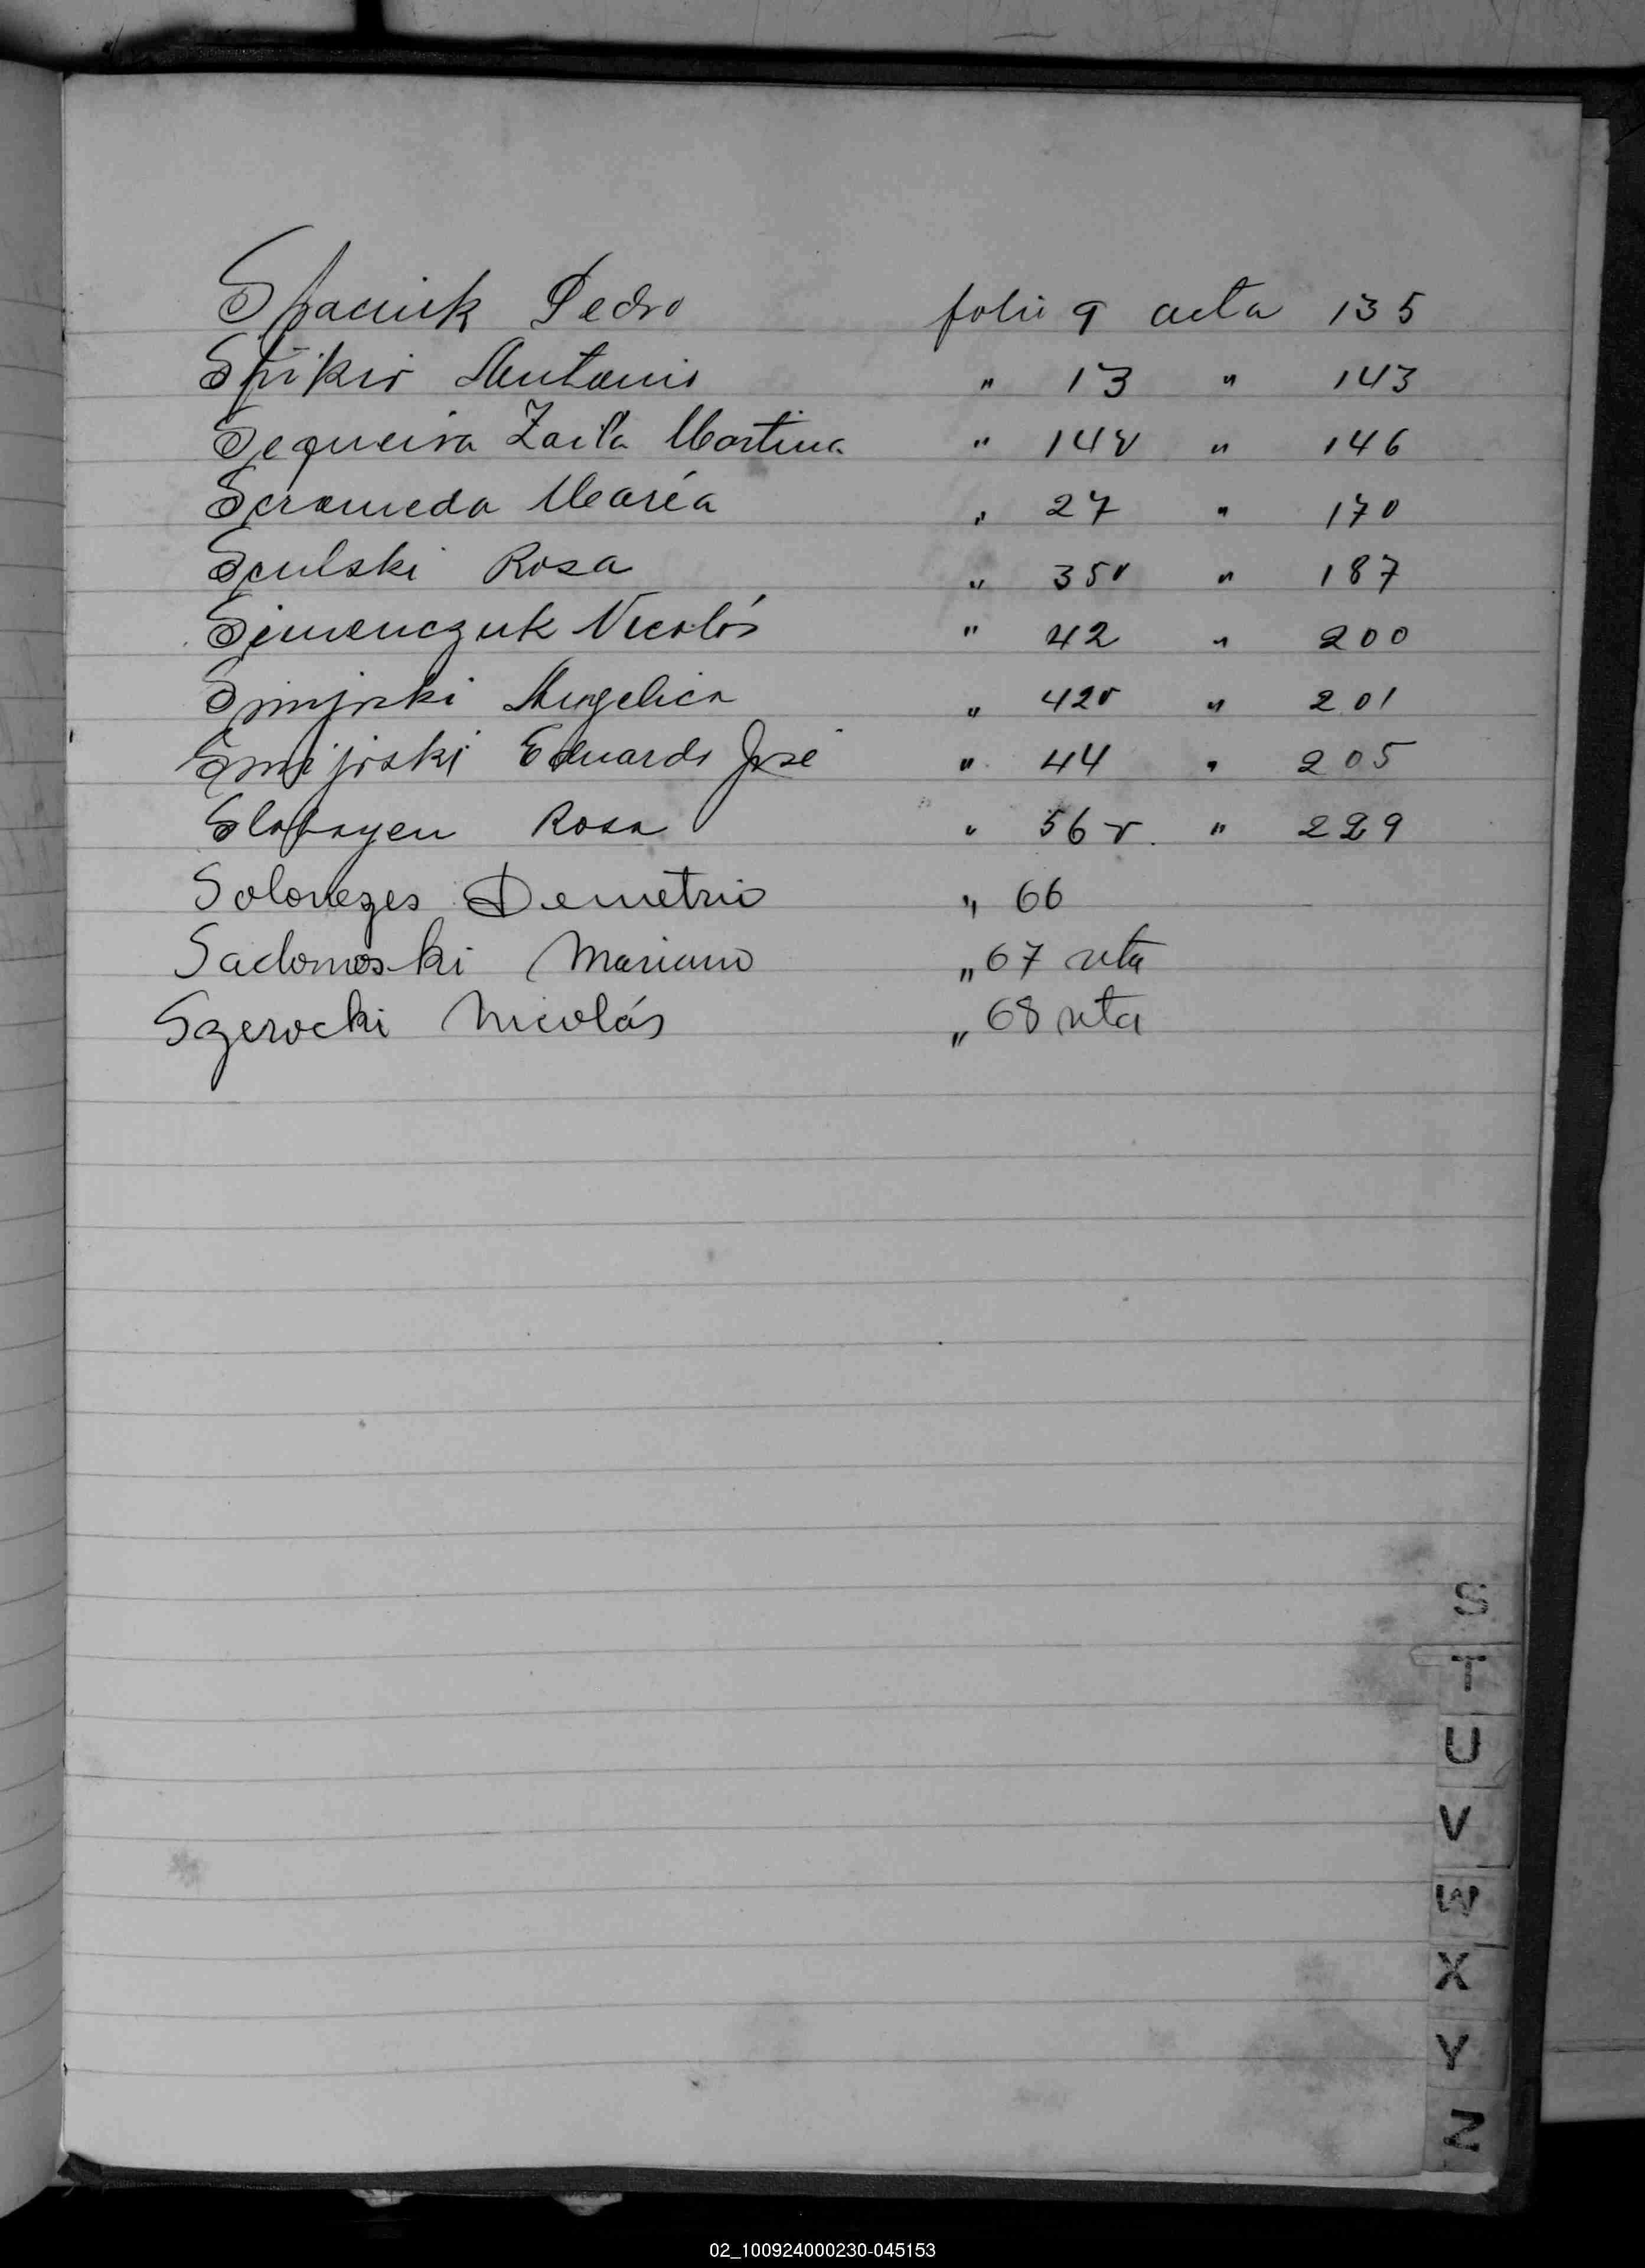 Spaciuk Pedro folio 9 acta 135
Spikir Antonio " 13 " 143
Sequeira Zaila Martina " 14v " 146
Scrameda María " 27 " 170
Sculski Rosa " 35v " 187
Simenczuk Nicolás " 42 " 200
Smijoski Angelica " 42v " 201
Smijoski Eduardo José " 44 " 205
Slobayen Rosa " 56v. " 229
Solonezes Demetrio " 66
Sadomoski Mariano " 67 vta
Szerocki Nicolás " 68 vta
S
T
U
V
W
X
Y
Z
02_100924000230-045153